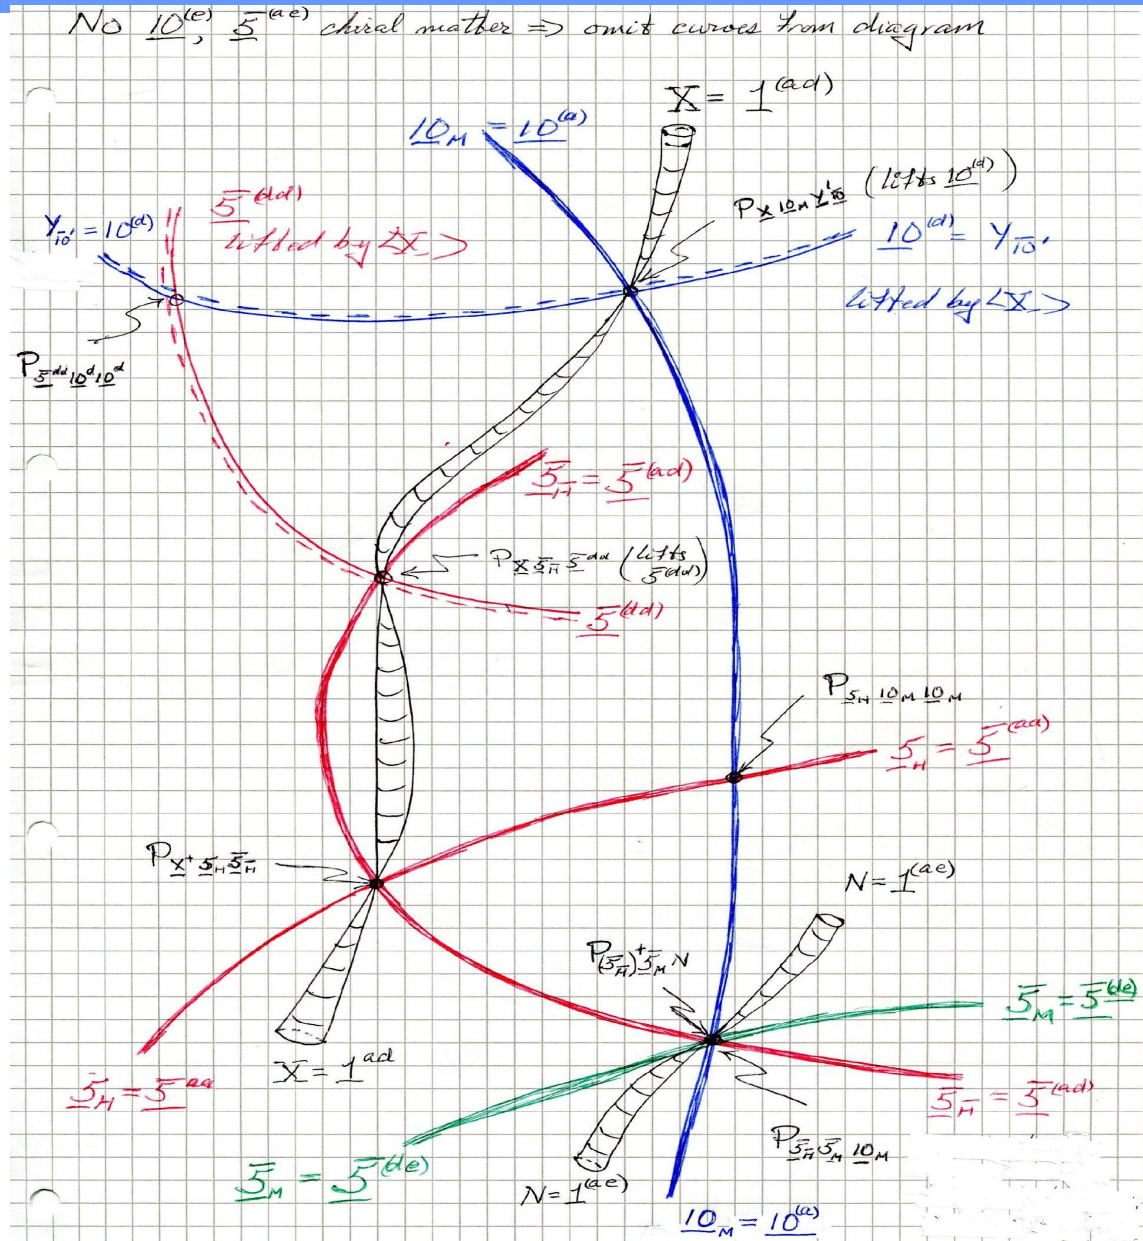 No 10^(e), 5̄^(ae) chiral matter ⇒ omit curves from diagram
X = 1^(ad)
10_M = 10^(a)
P_X 10_M Y_10' (lifts 10^(d))
5̄^(dd)
lifted by <X>
Y_10' = 10^(d)
10^(d) = Y_10'
lifted by <X>
P_5̄^dd 10^d 10^d
5̄_H̄ = 5̄^(ad)
P_X 5̄_H̄ 5̄^dd (lifts 5̄^(dd))
5̄^(dd)
P_5_H 10_M 10_M
5_H = 5̄^(aa)
P_X^+ 5_H 5̄_H̄
N = 1^(ae)
P_(5̄_H̄)^+ 5̄_M N
5̄_M = 5̄^(de)
X = 1^ad
5̄_H = 5̄^aa
5̄_H̄ = 5̄^(ad)
P_5̄_H̄ 5̄_M 10_M
5̄_M = 5̄^(de)
N = 1^(ae)
10_M = 10^(a)